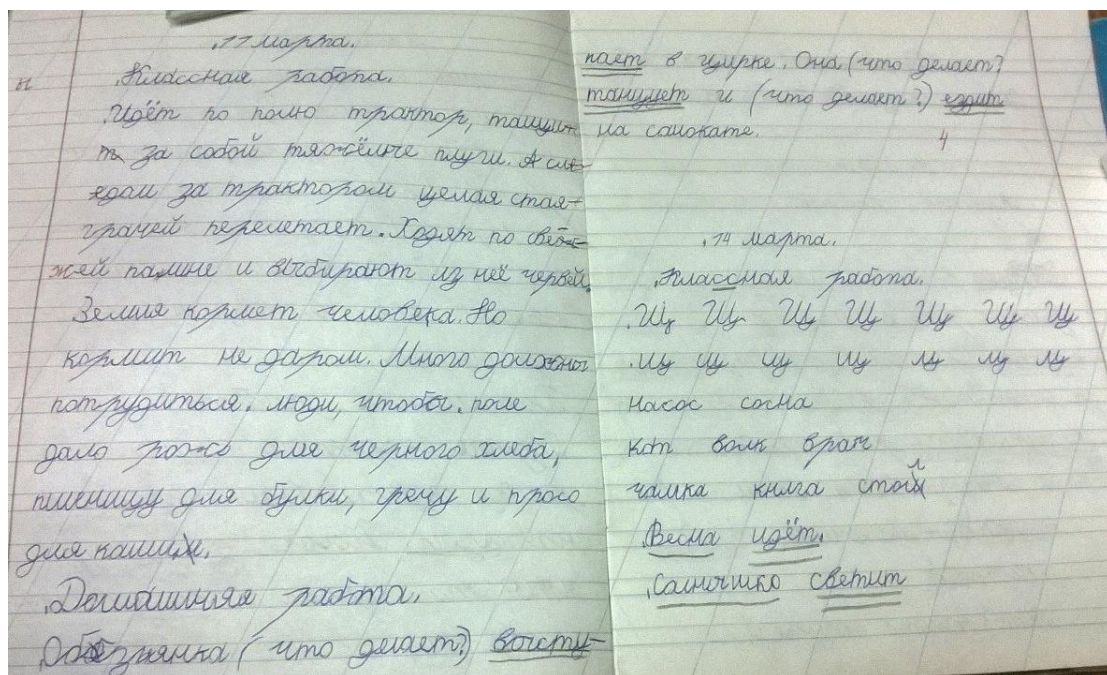 11 марта.
Классная работа.
Идёт по полю трактор, тащи-
т за собой тяжёлые плуги. А сле-
дом за трактором целая стая
грачей перелетает. Ходят по све-
жей пашне и выбирают из неё червей.
Земля кормет человека. Но
кормит не даром. Много должны
потрудиться. люди, чтобы. поле
дало рожь для черного хлеба,
пшеницу для булки, гречу и просо
для каши.
Домашняя работа.
Обезянка (что делает?) высту-
пает в цирке. Она (что делает?
танцует и (что делает?) ездит
на самокате.
4
14 марта.
Классная работа.
Щ Щ Щ Щ Щ Щ Щ
щ щ щ щ щ щ щ
насос сосна
кот волк врач
чашка книга стол
Весна идёт.
Солнышко светит